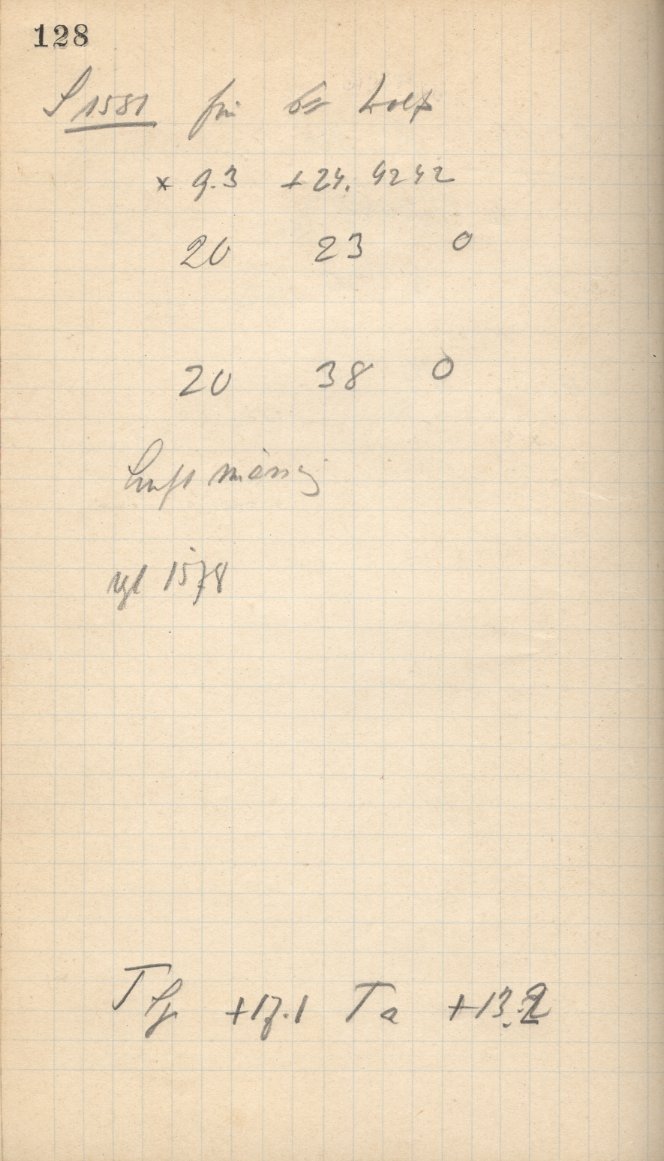 128
S 1581 für Dr Wolf
× 9.3 +24. 4242
20 23 0
20 38 0
Luft mässig
vgl 1578
T +17.1 Ta +13.2